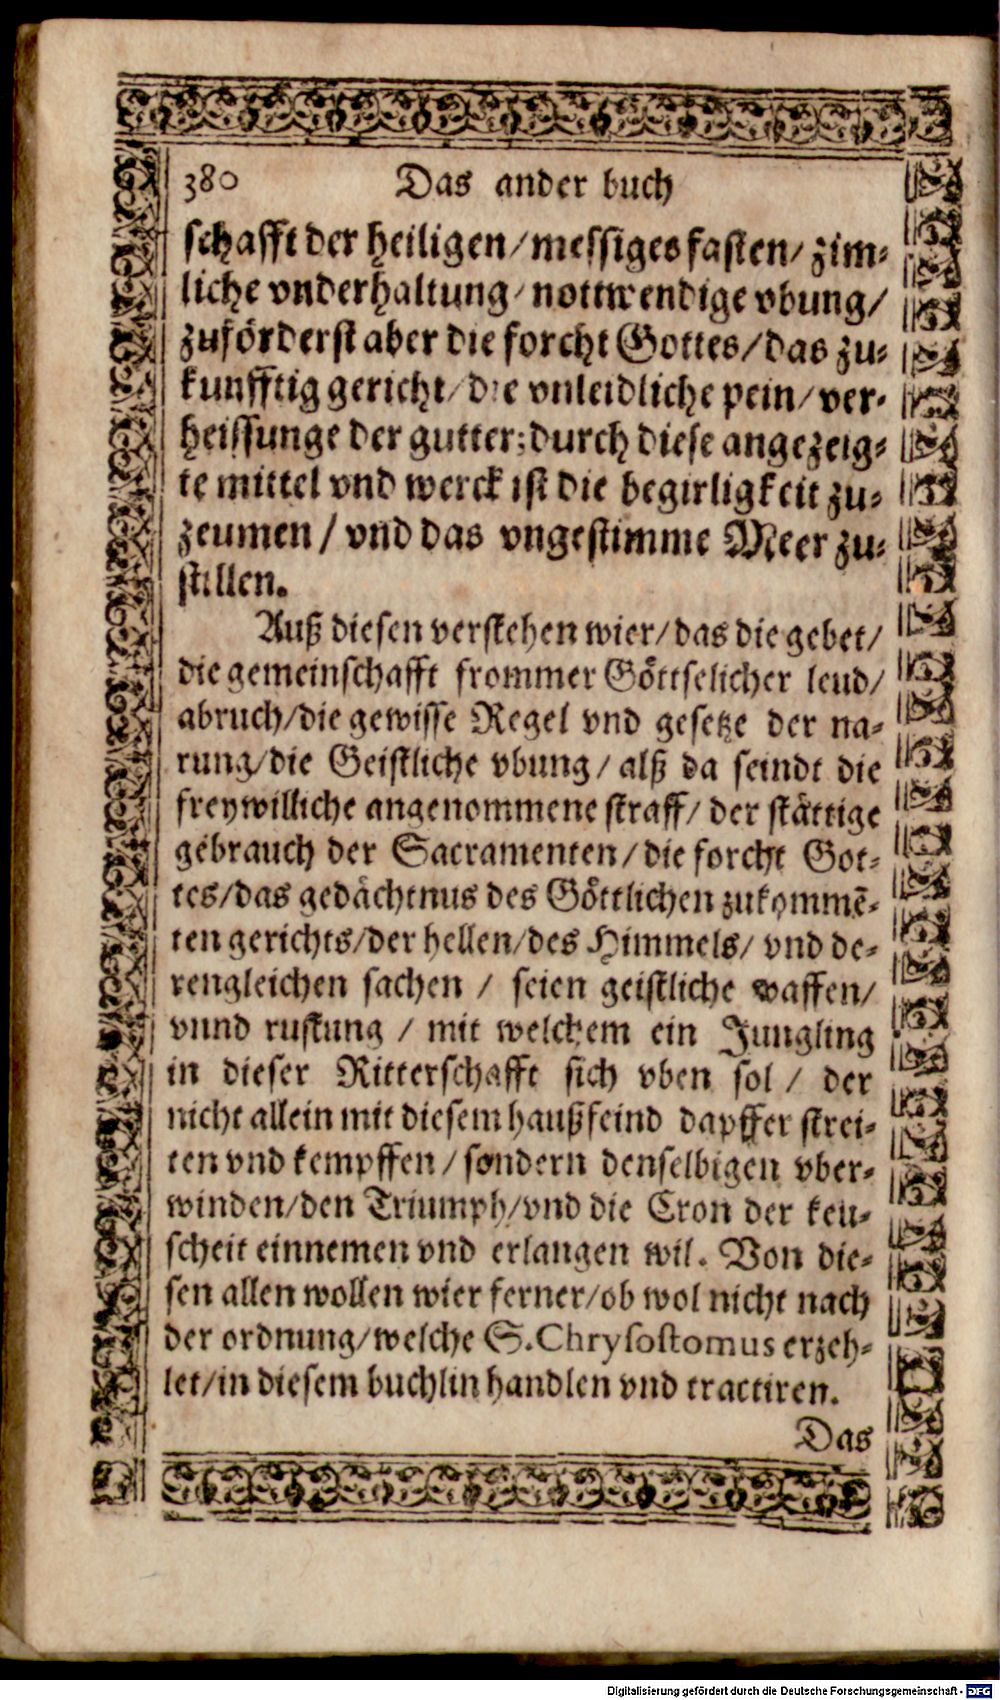 380 Das ander buch
schafft der heiligen/messiges fasten/zim-
liche vnderhaltung/nottwendige vbung/
zuförderst aber die forcht Gottes/das zu-
kunfftig gericht/die vnleidliche pein/ver-
heissunge der gutter;durch diese angezeig-
te mittel vnd werck ist die begirligkeit zu-
zeumen/vnd das vngestimme Meer zu-
stillen.
Auß diesen verstehen wier/das die gebet/
die gemeinschafft frommer Göttselicher leud/
abruch/die gewisse Regel vnd gesetze der na-
rung/die Geistliche vbung/alß da seindt die
freywilliche angenommene straff/der stättige
gebrauch der Sacramenten/die forcht Got-
tes/das gedächtnus des Göttlichen zukommē-
ten gerichts/der hellen/des Himmels/vnd de-
rengleichen sachen / seien geistliche waffen/
vnnd rustung / mit welchem ein Jungling
in dieser Ritterschafft sich vben sol / der
nicht allein mit diesem haußfeind dapffer strei-
ten vnd kempffen/sondern denselbigen vber-
winden/den Triumph/vnd die Cron der keu-
scheit einnemen vnd erlangen wil. Von die-
sen allen wollen wier ferner/ob wol nicht nach
der ordnung/welche S.Chrysostomus erzeh-
let/in diesem buchlin handlen vnd tractiren.
Das
Digitalisierung gefördert durch die Deutsche Forschungsgemeinschaft - DFG